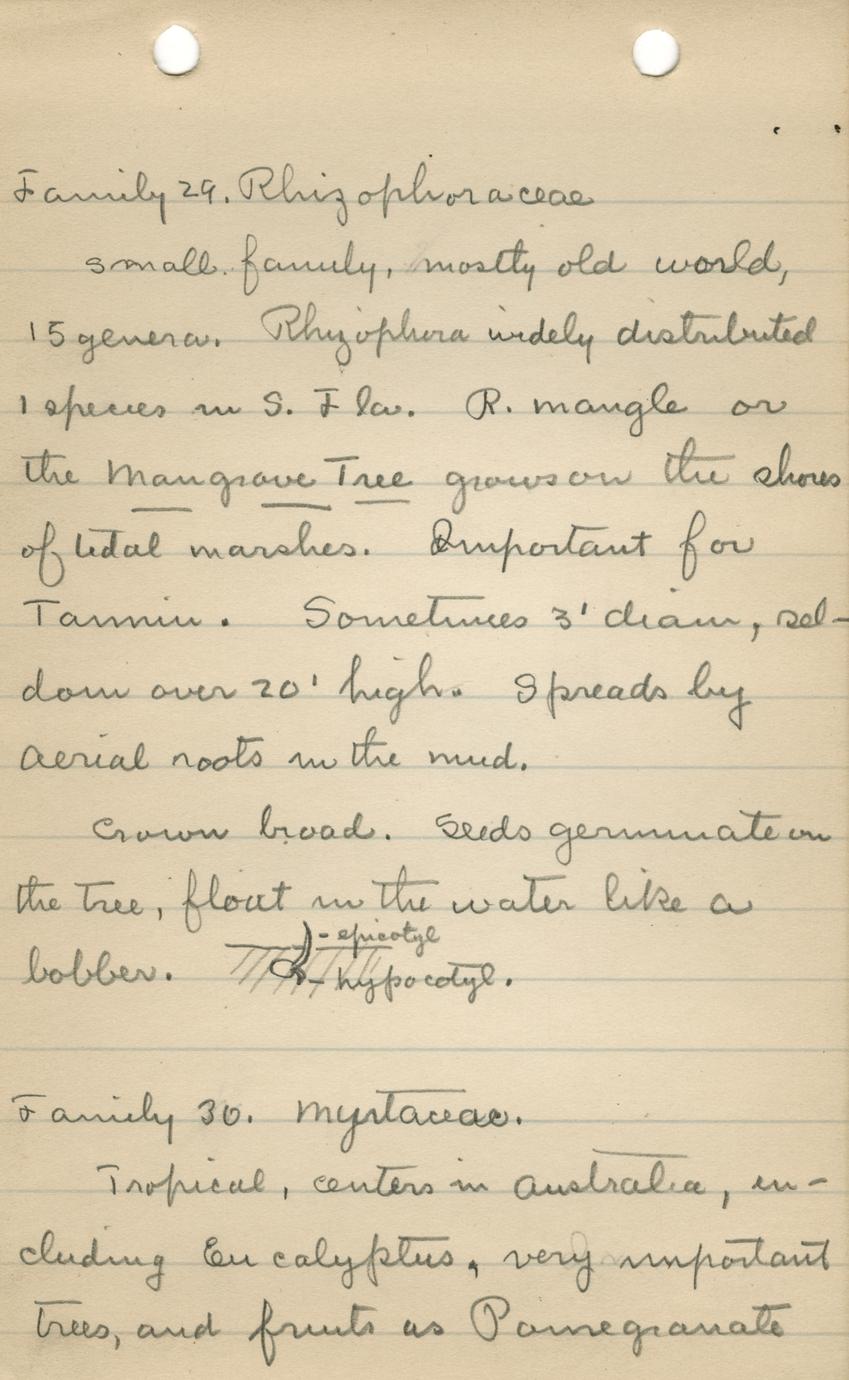 Family 29. Rhizophoraceae
small family, mostly old world,
15 genera. Rhizophora widely distributed
1 species in S. Fla. R. mangle or
the Mangrove Tree grows on the shores
of tidal marshes. Important for
Tannin. Sometimes 3' diam, sel-
dom over 20' high. Spreads by
aerial roots in the mud.
Crown broad. Seeds germinate on
the tree, float in the water like a
- epicotyl
bobber. - hypocotyl.
Family 30. Myrtaceae.
Tropical, centers in Australia, in-
cluding Eucalyptus, very important
trees, and fruits as Pomegranate